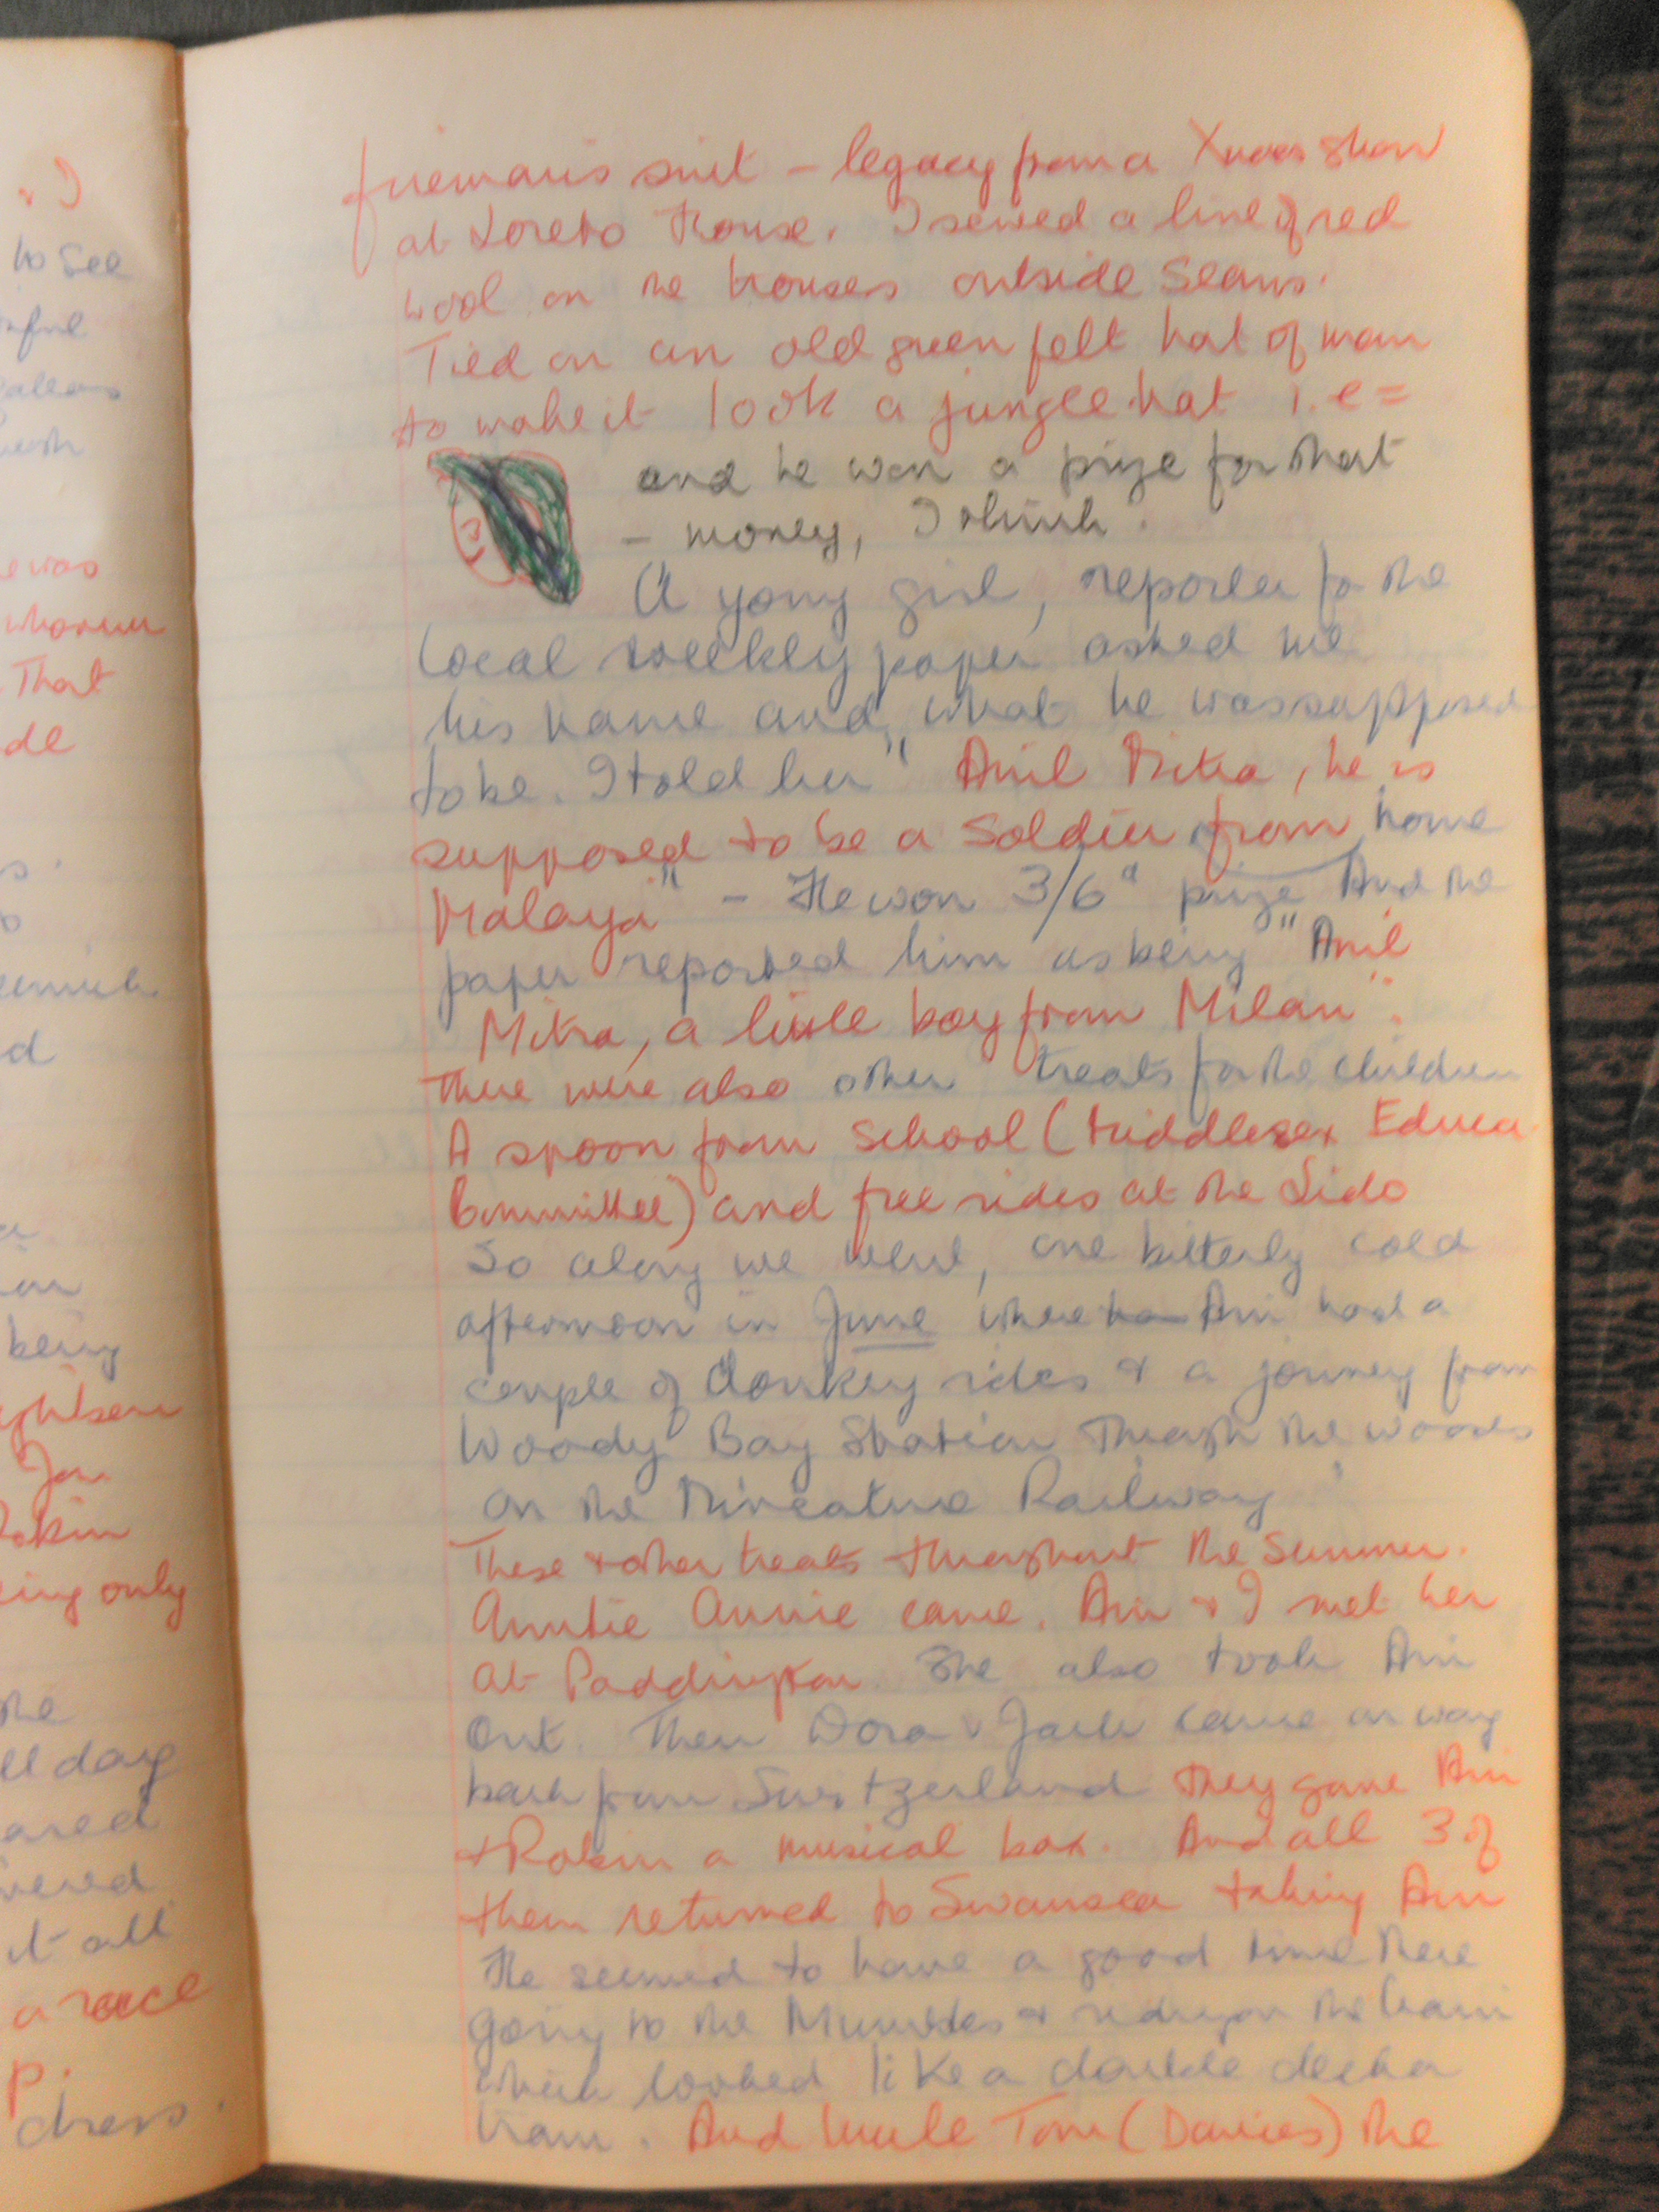 firemans suit - legacy from a Xmas show
at Loreto House. I sewed a line of red
wool on the trouses outside Seams.
Tied on an old green felt hat of man
to make it look a jungle hat i.e =
and he won a prize for that
- money, I think.
A young girl, reporter for the
local weekly paper asked me
his name and what he was supposed
to be. I told her " Anil Mitra, he is
supposed to be a Soldier from home
Malaya" - He won 3/6d prize And the
paper reported him as being "Anil
Mitra, a little boy from Milan".
There were also other treats for the children
A spoon from School (Middlesex Educa
Committee) and free rides at the Lido
So along we went, one bitterly cold
afternoon in June where Ani had a
couple of donkey rides & a journey from
Woody Bay Station through the woods
on the Mineature Railway
These & other treats throughout the Summer.
Auntie Annie came. Ani & I met her
at Paddington. She also took Ani
Out. Then Dora & Jack came on way
back from Switzerland They gave Ani
+ Robin a musical box. And all 3 of
them returned to Swansea taking Ani
He seemed to have a good time there
going to the Mumbles & riding on the train
which looked like a double decker
tram. And Uncle Tom (Davies) the
to see
e was
That
de
d
being
Robin
ing only
the
ll day
it all
a race
p.
dress.